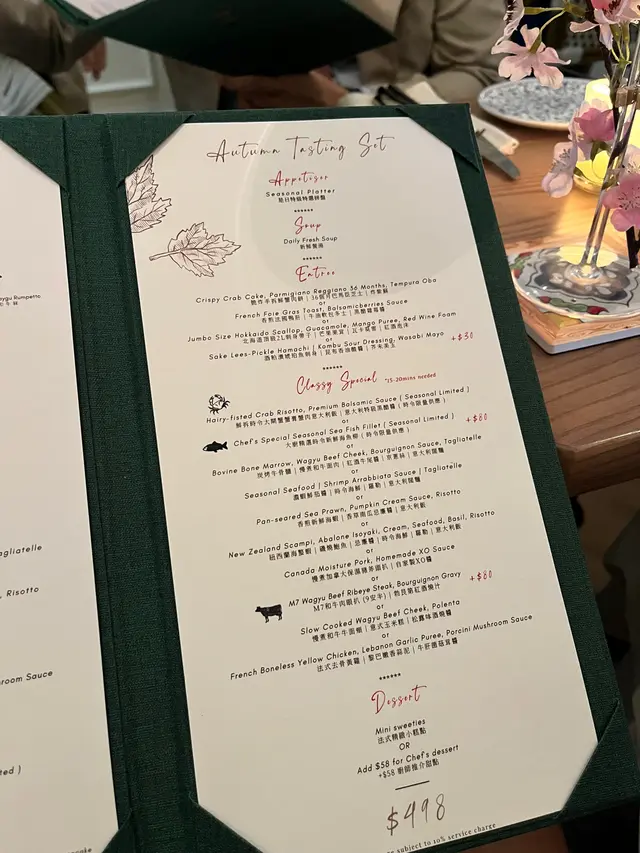 Autumn Tasting Set
Appetizer
Seasonal Platter
是日特級特選拼盤
******
Soup
Daily Fresh Soup
新鮮餐湯
******
Entree
Crispy Crab Cake, Parmigiano Reggiano 36 Months, Tempura Obo
or
French Foie Gras Toast, Balsamicberries Sauce
or
Jumbo Size Hokkaido Scallop, Guacamole, Mango Puree, Red Wine Foam
or
Sake Lees-Pickle Hamachi | Kombu Sour Dressing, Wasabi Mayo +$30
******
Classy Special *15-20mins needed
Hairy-fisted Crab Risotto, Premium Balsamic Sauce ( Seasonal Limited )
or
Chef's Special Seasonal Sea Fish Fillet ( Seasonal Limited ) +$80
大廚精選時令新鮮海魚柳 ( 時令限量供應 )
or
Bovine Bone Marrow, Wagyu Beef Cheek, Bourguignon Sauce, Tagliatelle
or
Seasonal Seafood | Shrimp Arrabbiata Sauce | Tagliatelle
or
Pan-seared Sea Prawn, Pumpkin Cream Sauce, Risotto
香煎新鮮海蝦 | 香草南瓜忌廉醬 | 意大利飯
or
New Zealand Scampi, Abalone Isoyaki, Cream, Seafood, Basil, Risotto
紐西蘭海螯蝦 | 磯燒鮑魚 | 忌廉 | 時令海鮮 | 羅勒 | 意大利飯
or
Canada Moisture Pork, Homemade XO Sauce
or
M7 Wagyu Beef Ribeye Steak, Bourguignon Gravy +$80
M7和牛肉眼扒 (9安半) | 勃艮第紅酒燒汁
or
Slow Cooked Wagyu Beef Cheek, Polenta
慢煮和牛牛面頰 | 意式玉米糕 | 松露味酒燒醬
or
French Boneless Yellow Chicken, Lebanon Garlic Puree, Porcini Mushroom Sauce
法式去骨黃雞 | 黎巴嫩香蒜泥 | 牛肝菌菇茸醬
******
Dessert
Mini sweeties
法式精緻小糕點
OR
Add $58 for Chef's dessert
+$58 廚師推介甜點
$498
subject to 10% service charge
agyu Rumpetto
agliatelle
, Risotto
room Sauce
ted )